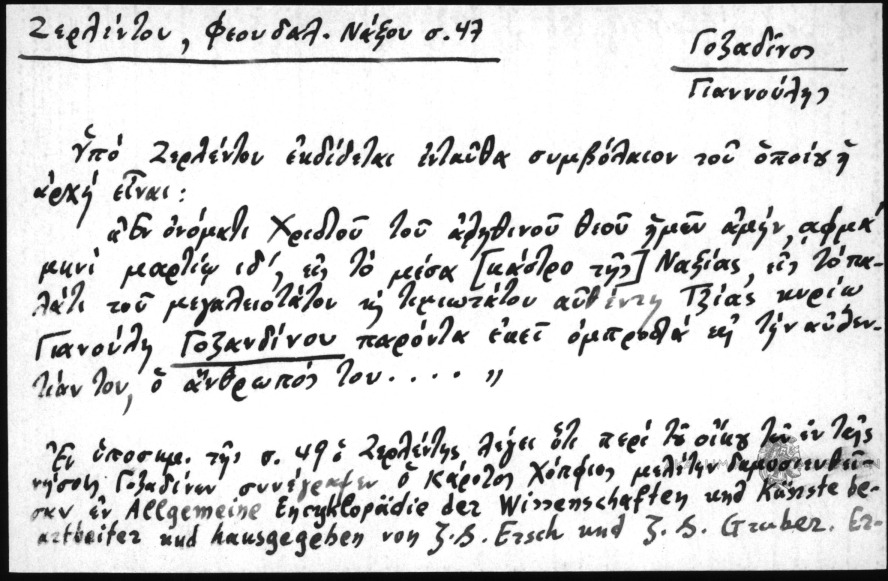 Ζερλέντου, Φεουδαλ. Νάξου σ. 47
Γοζαδίνος
Γιαννούλης
Ὑπό Ζερλέντου ἐκδίδεται ἐνταῦθα συμβόλαιον τοῦ ὁποίου ἡ
ἀρχή εἶναι:
"Ἐν ὀνόματι Χριστοῦ τοῦ ἀληθινοῦ θεοῦ ἡμῶν ἀμήν, αφμα'
μηνί μαρτίῳ ιδ', εἰς τό μέσα [κάστρο τῆς] Ναξίας, εἰς τό πα-
λάτι τοῦ μεγαλειοτάτου κ τιμιωτάτου αὐθέντη Τζίας κυρίῳ
Γιανούλη Γοζανδίνου παρόντα ἐκεῖ ὀμπροστά εἰς τήν αὐθεν-
τιάν του, ὁ ἄνθρωπός του . . . . "
Ἐν ὑποσημ. τῆς σ. 49 ὁ Ζερλέντης λέγει ὅτι περί τοῦ οἴκου τῶν ἐν ταῖς
νήσοις Γοζαδίνων συνέγραψεν ὁ Κάρολος Χόπφιος μελέτην δημοσιευθεῖ-
σαν ἐν Allgemeine Encyklopädie der Wissenschaften und Künste be-
arbeitet und hausgegeben von J. S. Ersch und J. S. Gruber. Er-